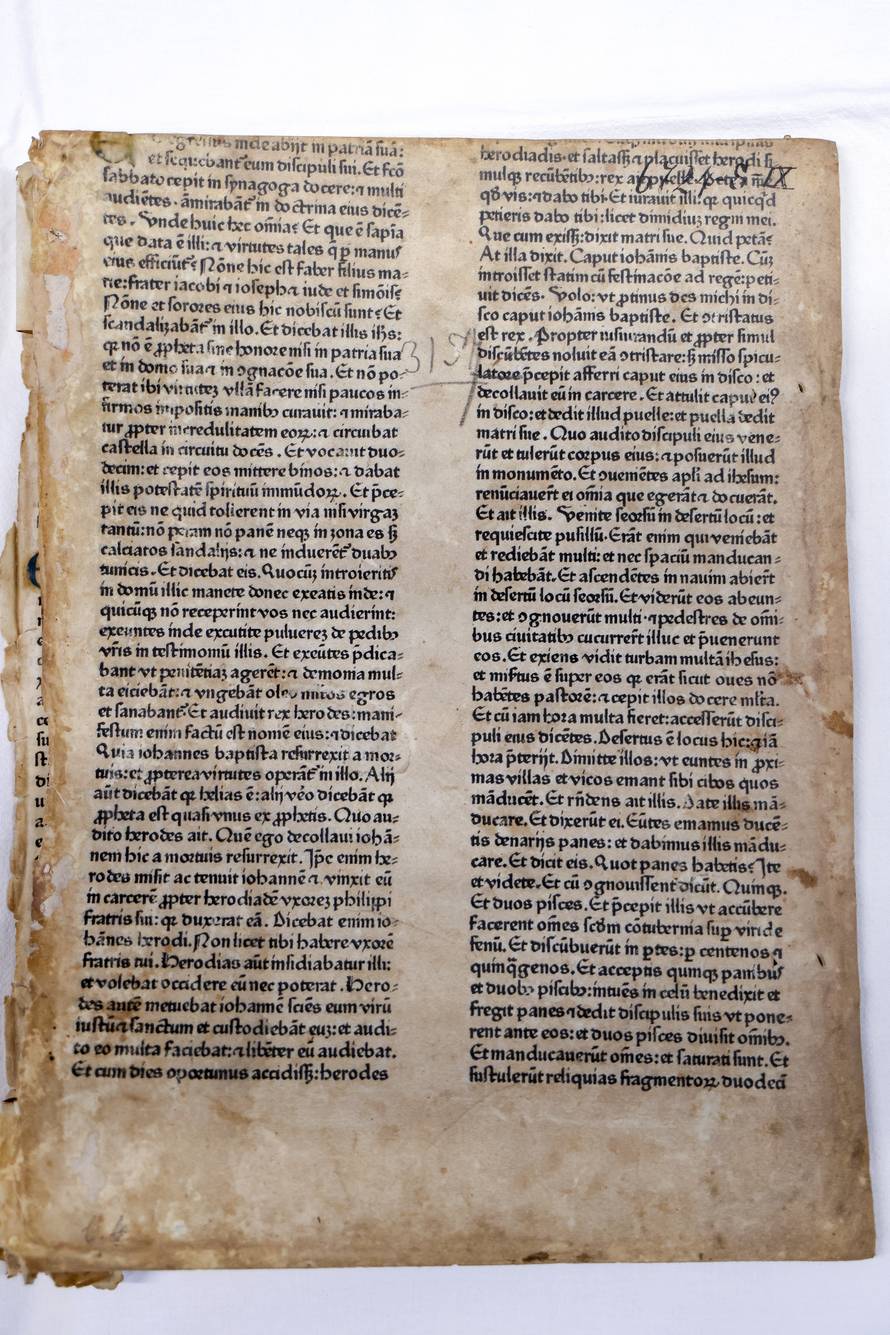 inde abijt in patriã suã:
et sequebant᷑ eum discipuli sui. Et fc̃o
sabbato cepit in synagoga docere: ⁊ multi
audiẽtes. ãmirabant᷑ in doctrina eius dicẽ⸗
tes. Vnde huic hec om̃ia? Et que ẽ sapĩa
que data ẽ illi: ⁊ virtutes tales q̃ ꝑ manus
eius efficiunt᷑? Nõne hic est faber filius ma⸗
rie: frater iacobi ⁊ ioseph ⁊ iude et simõis?
Nõne et sorores eius hic nobiscũ sunt? Et
scandalizabãt᷑ in illo. Et dicebat illis ih̃s:
qꝛ nõ ẽ ꝓpheta sine honore nisi in patria sua
et in domo sua ⁊ in ꝯgnacõe sua. Et nõ po⸗
terat ibi virtutez vllã facere nisi paucos in⸗
firmos impositis manibꝰ curauit: ⁊ miraba⸗
tur ꝓpter incredulitatem eoꝝ: ⁊ circuibat
castella in circuitu docẽs. Et vocauit duo⸗
decim: et cepit eos mittere binos: ⁊ dabat
illis potestatẽ spirituũ immũdoꝝ. Et p̃ce⸗
pit eis ne quid tollerent in via nisi virgaz
tantũ: nõ peram nõ panẽ neqꝫ in zona es sꝫ
calciatos sandalijs: ⁊ ne induerẽt᷑ duabꝰ
tunicis. Et dicebat eis. Quocũqꝫ introieritis
in domũ illic manete donec exeatis inde: ⁊
quicũqꝫ nõ receperint vos nec audierint:
exeuntes inde excutite puluerez de pedibꝰ
vr̃is in testimoniũ illis. Et exeũtes p̃dica⸗
bant vt penitẽtiaz agerẽt: ⁊ demonia mul⸗
ta eiciebãt: ⁊ vngebãt oleo mltos egros
et sanabant᷑. Et audiuit rex herodes: mani⸗
festum enim factũ est nomẽ eius: ⁊ dicebat
Quia iohannes baptista resurrexit a mor⸗
tuis: et ꝓpterea virtutes operãt᷑ in illo. Alij
aũt dicebãt qꝛ helias ẽ: alij v̉o dicebãt qꝛ
ꝓpheta est quasi vnus ex ꝓphetis. Quo au⸗
dito herodes ait. Quẽ ego decollaui iohã⸗
nem hic a mortuis resurrexit. Ip̃e enim he⸗
rodes misit ac tenuit iohannẽ ⁊ vinxit eũ
in carcerẽ ꝓpter herodiadẽ vxorez philippi
fratris sui: qꝛ duxerat eã. Dicebat enim io⸗
hãnes herodi. Non licet tibi habere vxorẽ
fratris tui. Herodias aũt insidiabatur illi:
et volebat occidere eũ nec poterat. Hero⸗
des autẽ metuebat iohannẽ sciẽs eum virũ
iustũ ⁊ sanctum et custodiebãt euz: et audi⸗
to eo multa faciebat: ⁊ libẽter eũ audiebat.
Et cum dies oportunus accidissꝫ: herodes
herodiadis. et saltassꝫ ⁊ placuisset herodi si⸗
mulqꝫ recũbẽtibꝰ: rex ait puelle. Pete a me
qð vis: ⁊ dabo tibi. Et iurauit illi: qꝛ quicq̃d
petieris dabo tibi: licet dimidiuz regni mei.
Que cum exissꝫ: dixit matri sue. Quid petã?
At illa dixit. Caput iohãnis baptiste. Cũqꝫ
introisset statim cũ festinacõe ad regẽ: peti⸗
uit dicẽs. Volo: vt ꝓtinus des michi in di⸗
sco caput iohãnis baptiste. Et ꝯtristatus
est rex. Propter iusiurandũ et ꝓpter simul
discũbẽtes noluit eã ꝯtristare: sꝫ misso spicu⸗
latore p̃cepit afferri caput eius in disco: et
decollauit eũ in carcere. Et attulit caput eiꝰ
in disco: et dedit illud puelle: et puella dedit
matri sue. Quo audito discipuli eius vene⸗
rũt et tulerũt corpus eius: ⁊ posuerũt illud
in monumẽto. Et ꝯueniẽtes apl̃i ad ihesum:
renũciauer̃t ei om̃ia que egerãt ⁊ docuerãt.
Et ait illis. Venite seorsũ in desertũ locũ: et
requiescite pusillũ. Erãt enim qui veniebãt
et rediebãt multi: et nec spaciũ manducan⸗
di habebãt. Et ascendẽtes in nauim abier̃t
in desertũ locũ seorsũ. Et viderũt eos abeun⸗
tes: et ꝯgnouerũt multi. ⁊ pedestres de om̃i⸗
bus ciuitatibꝰ cucurrer̃t illuc et p̃uenerunt
eos. Et exiens vidit turbam multã ihesus:
et misertus ẽ super eos qꝛ erãt sicut oues nõ
habẽtes pastorẽ: ⁊ cepit illos docere ml̃ta.
Et cũ iam hora multa fieret: accesserũt disci⸗
puli eius dicẽtes. Desertus ẽ locus hic: ⁊ iã
hora p̃terijt. Dimitte illos: vt euntes in ꝓxi⸗
mas villas et vicos emant sibi cibos quos
mãducẽt. Et rñdens ait illis. Date illis mã⸗
ducare. Et dixerũt ei. Eũtes emamus ducẽ⸗
tis denarijs panes: et dabimus illis mãdu⸗
care. Et dicit eis. Quot panes habetis? Ite
et videte. Et cũ ꝯgnouissent dicũt. Quinqꝫ.
Et duos pisces. Et p̃cepit illis vt accũbere
facerent om̃es scd̃m cõtubernia suꝑ viride
fenũ. Et discũbuerũt in ꝑtes: ꝑ centenos ⁊
quinq̃genos. Et acceptis quinqꝫ panibus
et duobꝰ piscibꝰ: intuẽs in celũ benedixit et
fregit panes ⁊ dedit discipulis suis vt pone⸗
rent ante eos: et duos pisces diuisit om̃ibꝰ.
Et manducauerũt om̃es: et saturati sunt. Et
sustulerũt reliquias fragmentoꝝ duodecĩ